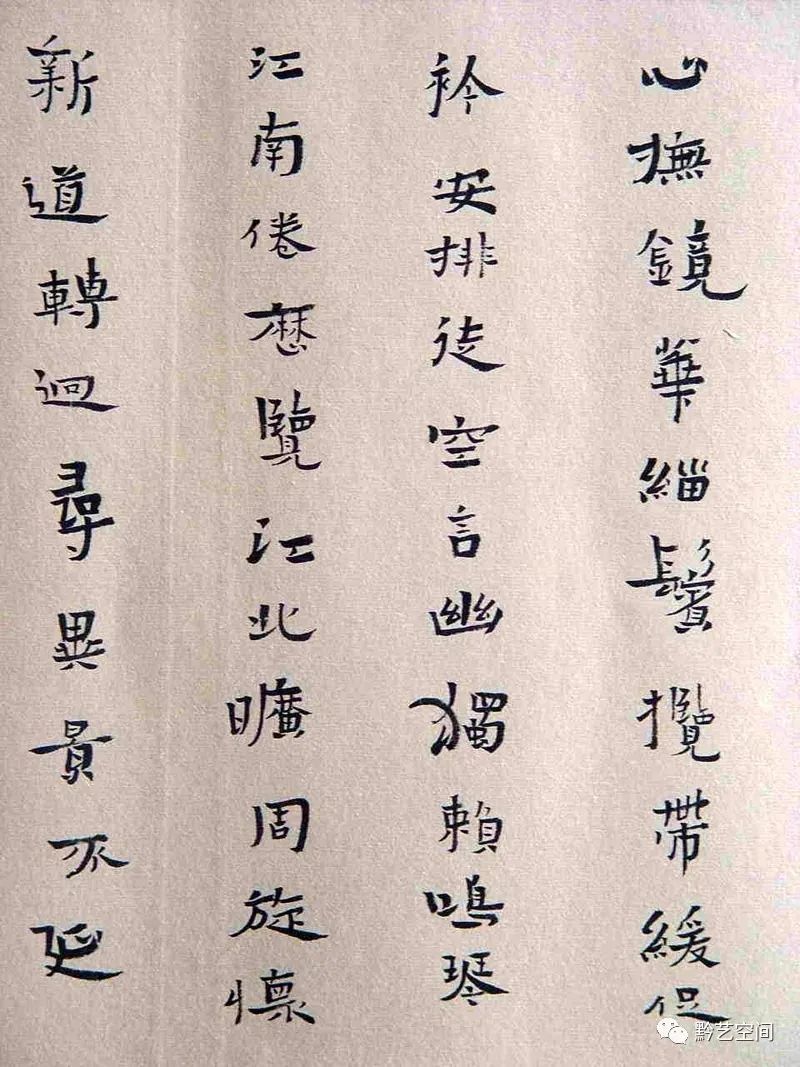 心撫鏡華緇鬢攬帶緩促
衿安排徒空言幽獨賴鳴琴
江南倦歷覽江北曠周旋懷
新道轉逈尋異景不延
黔艺空间